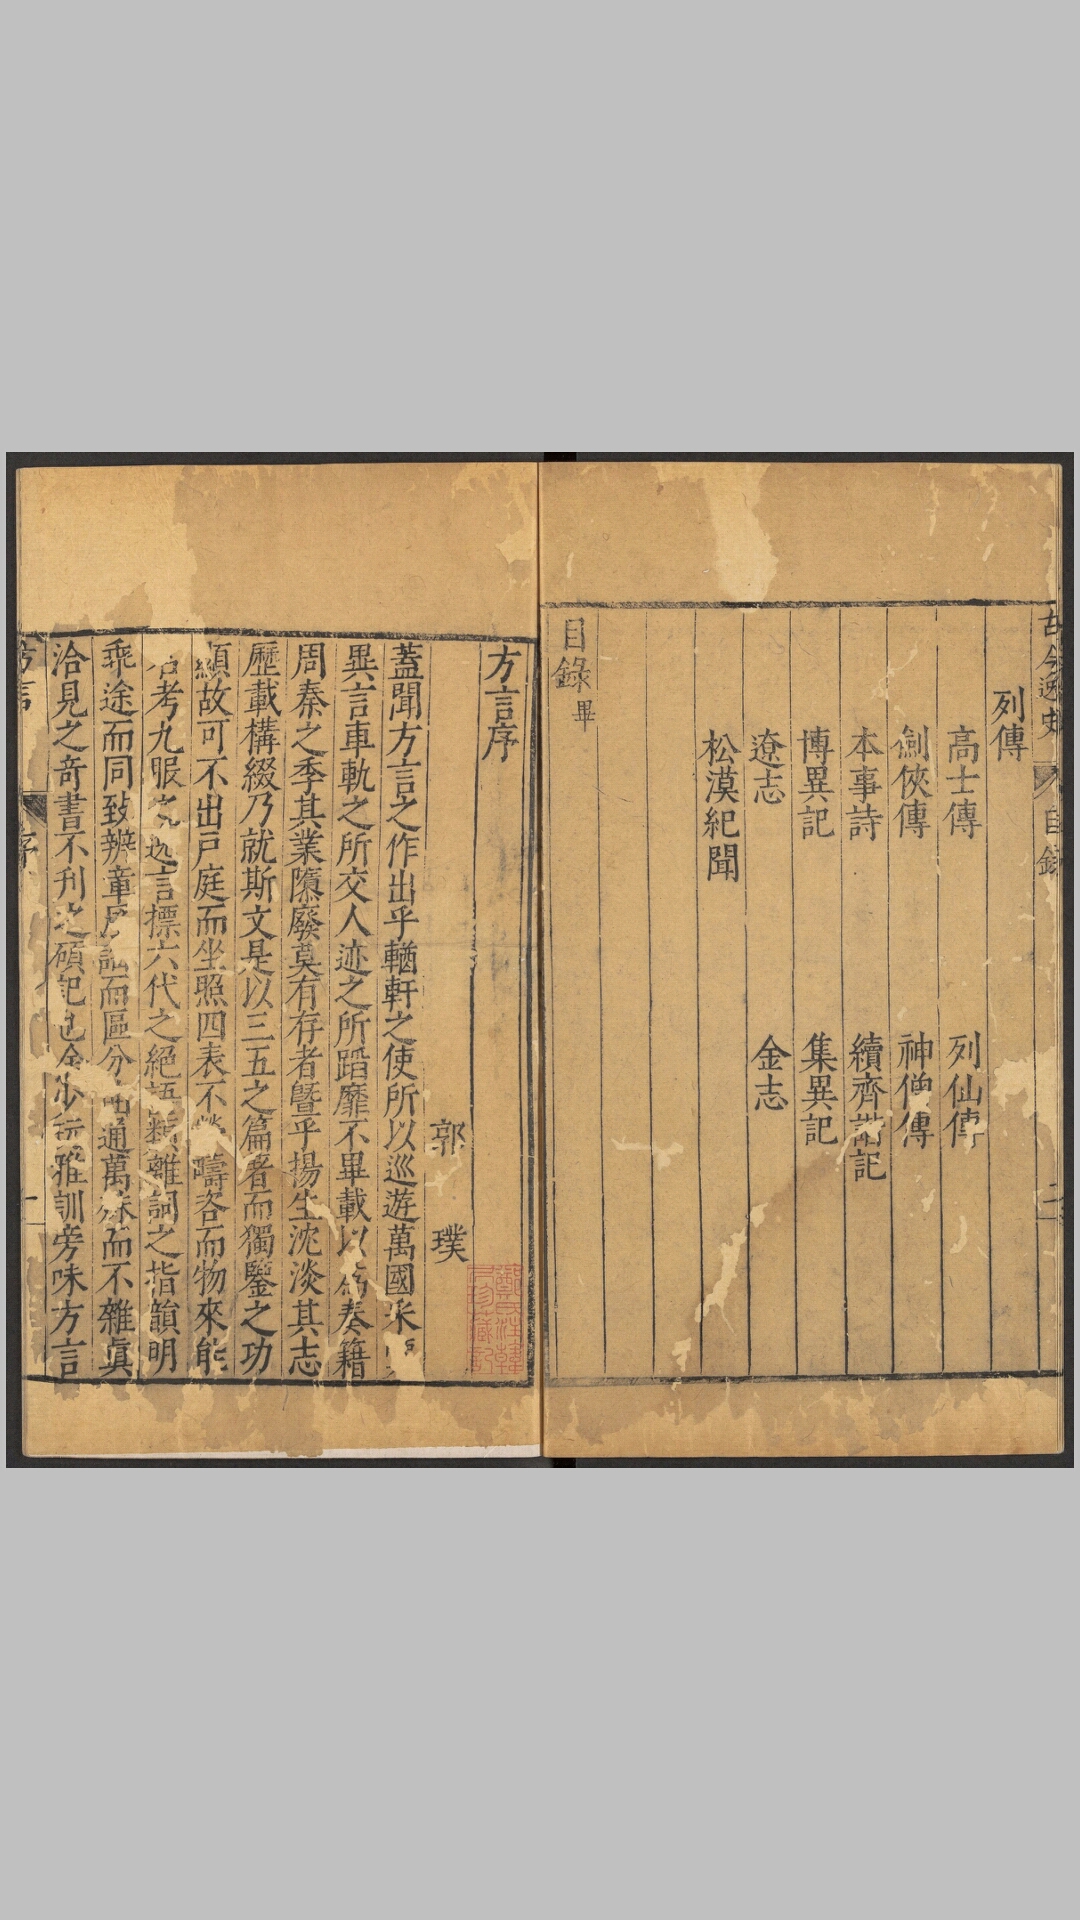 古今逸史 目錄 二
列傳
高士傳 列仙傳
劍俠傳 神僧傳
本事詩 續齊諧記
博異記 集異記
遼志 金志
松漠紀聞
目錄畢
方言序
郭璞
蓋聞方言之作出乎輶軒之使所以巡遊萬國采
異言車軌之所交人迹之所蹈靡不畢載以為奏籍
周秦之季其業隳廢莫有存者暨乎揚生沈淡其志
歷載構綴乃就斯文是以三五之篇著而獨鑒之功
顯故可不出戶庭而坐照四表不勞疇咨而物來能
名考九服之逸言摽六代之絕語類離詞之指韻明
乖途而同致辨章風謠而區分曲通萬殊而不雜真
洽見之奇書不刊之碩記也余少玩雅訓旁味方言
方言 序 一